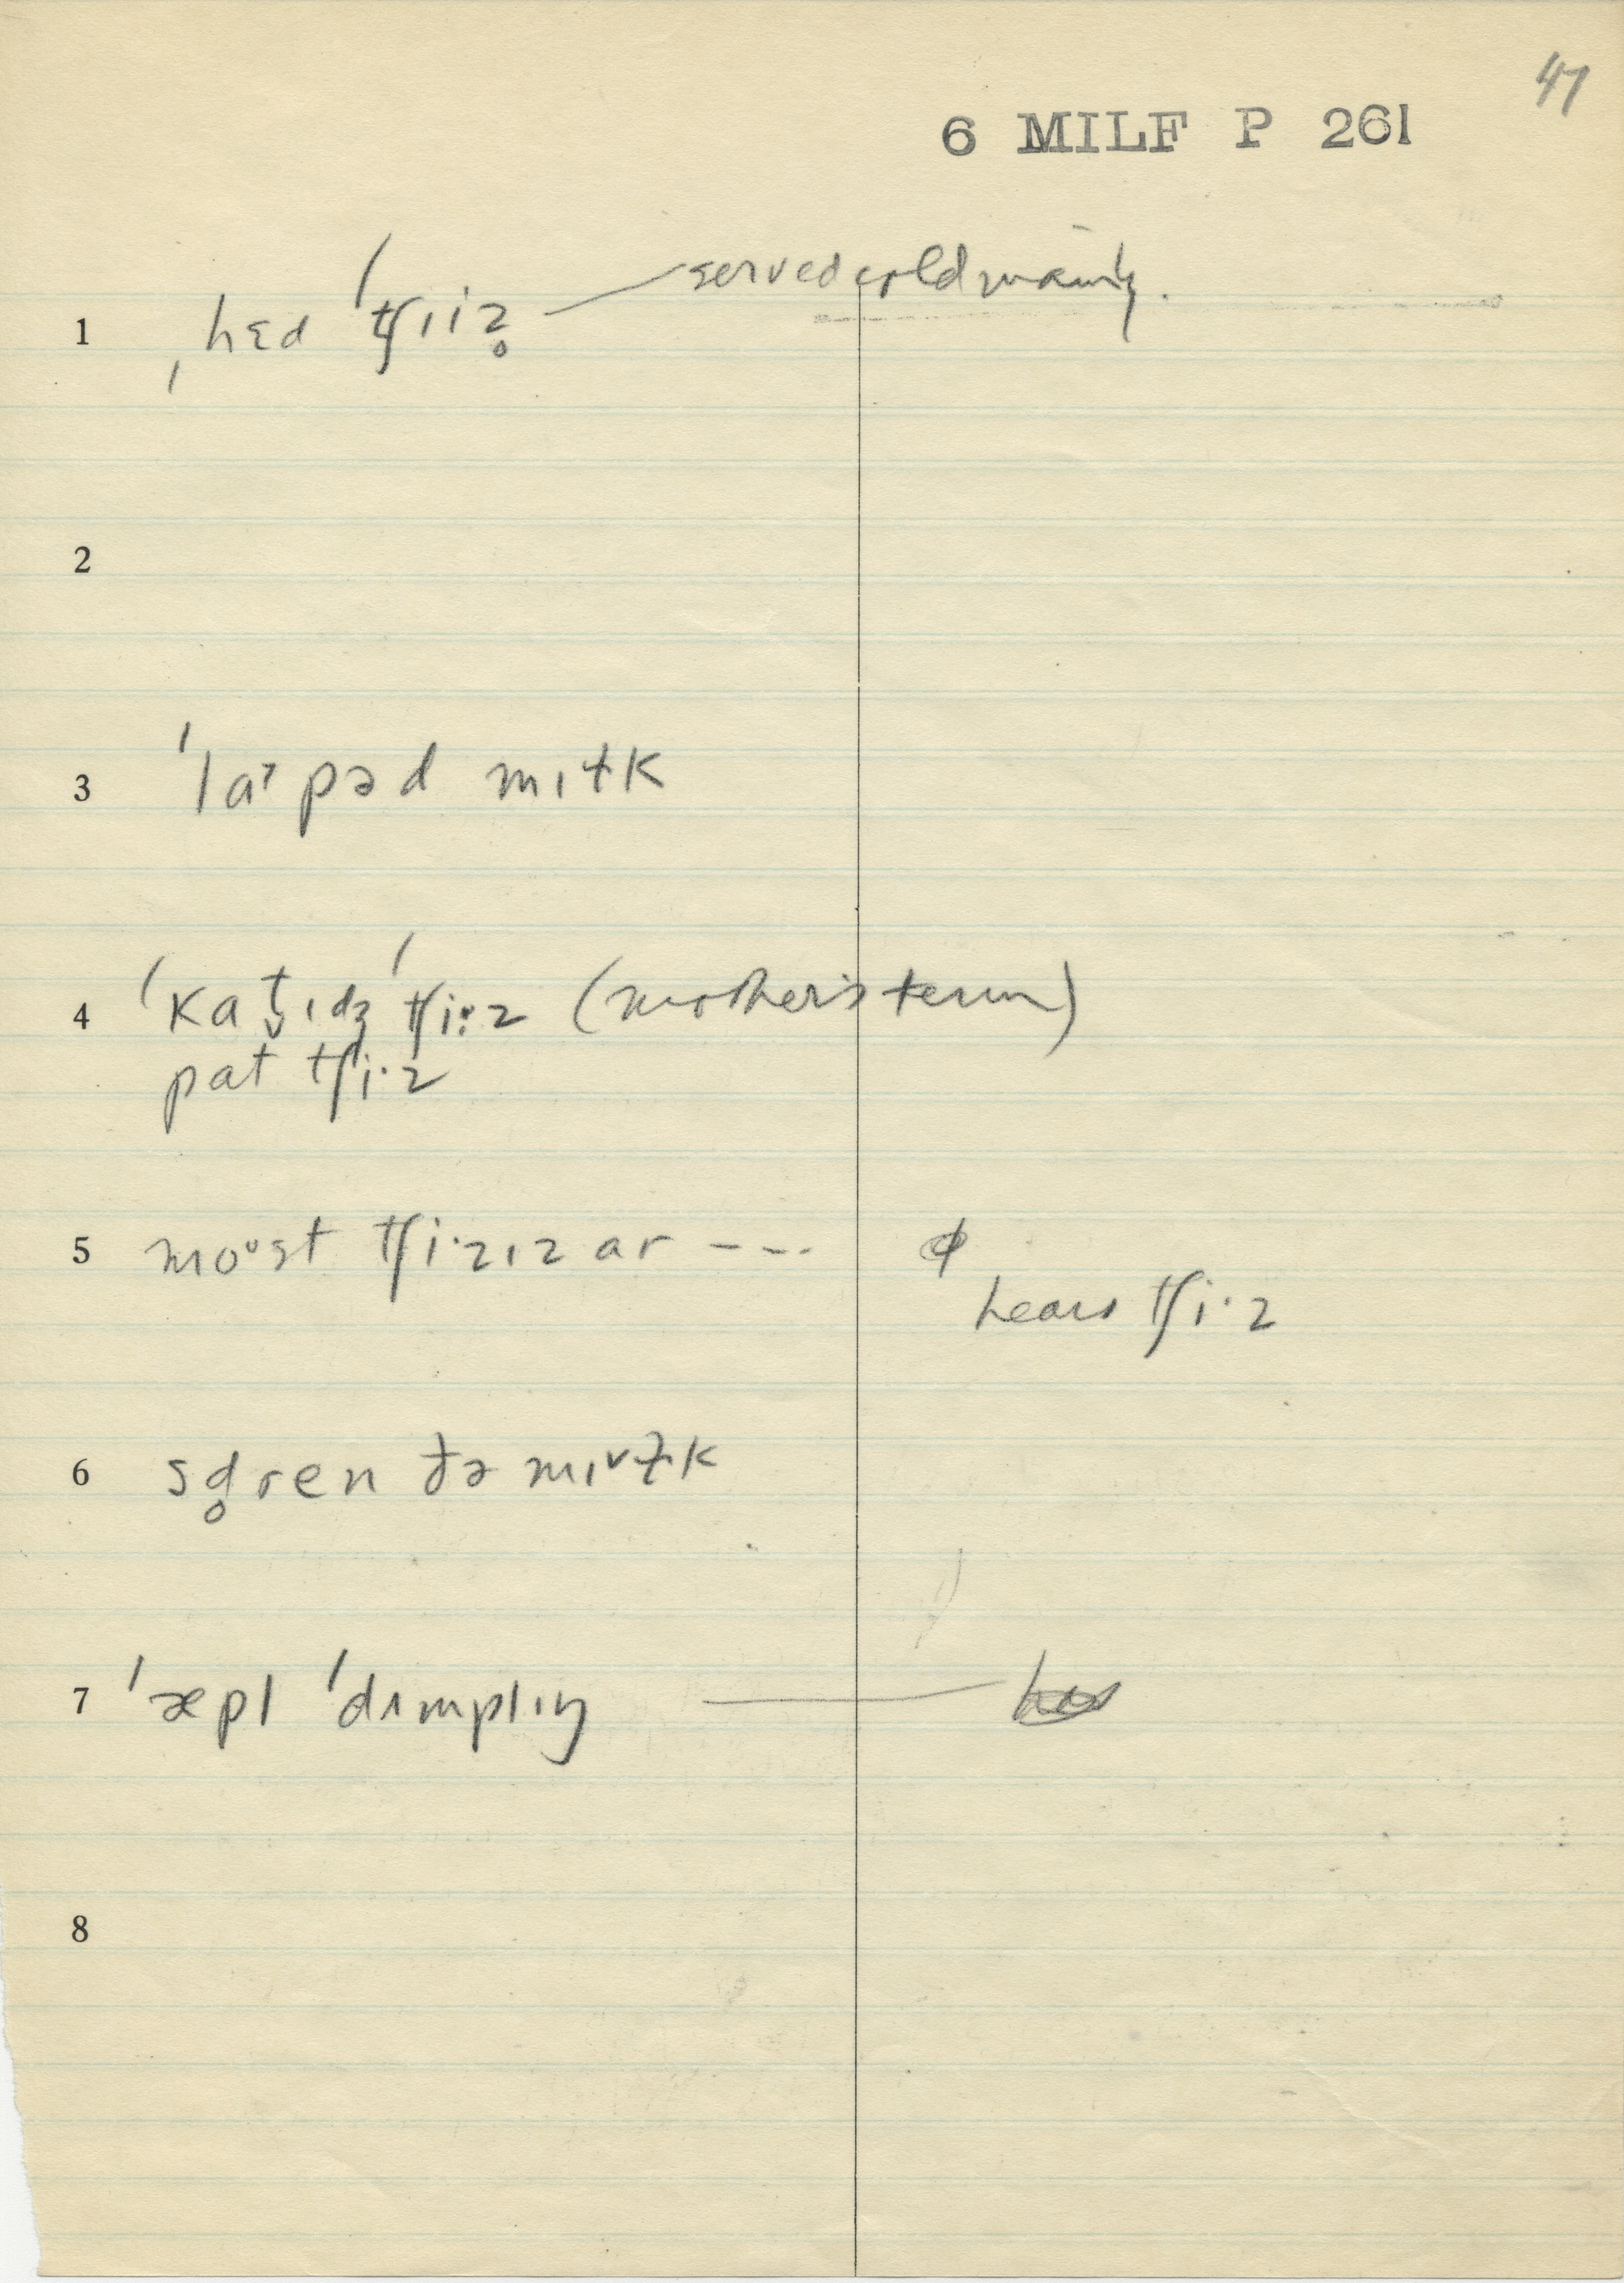 47
6 MILF P 261
1 ˌhɛd ˈtʃɪiz̥ — served cold mainly.
2
3 ˈla˃pəd mɪɫk
4 ˈkat̬ɪdʒ ˈtʃi·z (mother's term)
pat tʃi·z
5 moᶷst tʃi·zɪz ar --- ϕ
hears tʃi·z
6 sd̥ren ðə mɪ˅ɫk
7 ˈæpl ˈdʌmplɪŋ —
8